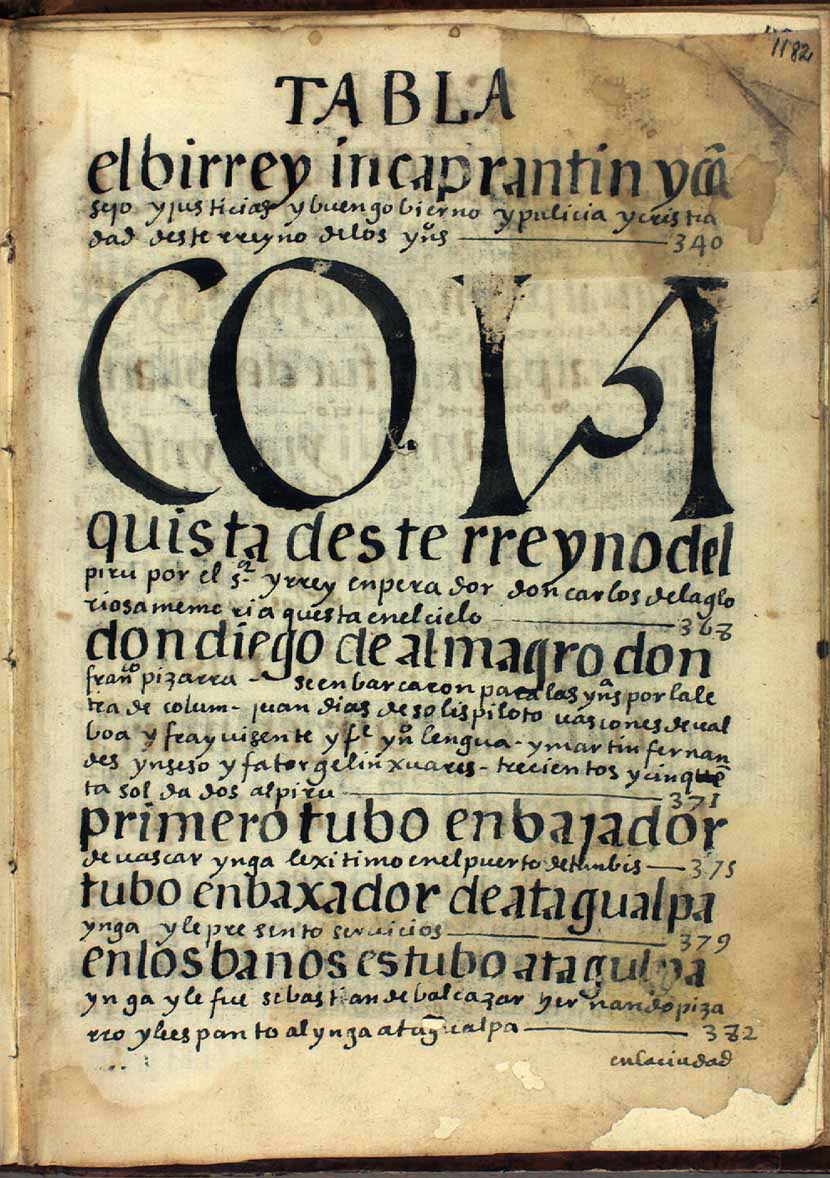 1182
TABLA
el birrey incap rantin y cō
sejo y justicias y buen gobierno y pulicia y cristia
dad deste rreyno de los yn̄s 340
CON
quista deste rreyno del
piru por el s.ᵒʳ y rrey enperador don carlos de la glo
riosa memoria questa en el cielo 368
don diego de almagro don
fran.ᶜᵒ pizarra - se enbarcaron para las yn̄s por la le
tra de colum - juan dias de solis piloto uasco nes de ual
boa y fray uisente y felᵉ ynº lengua - y martin fernan
des ynseso y fator gelin̄ xuares - trecientos y cinquē
ta soldados al piru 371
primero tubo enbajador
de uascar ynga lexitimo en el puerto de tunbis 375
tubo enbaxador de atagualpa
ynga y le presento seruicios 379
en los banos estubo atagulpa
ynga y le fue sebastian de balcazar hernando piza
rro y lees panto al ynga atagualpa 382
en la ciudad